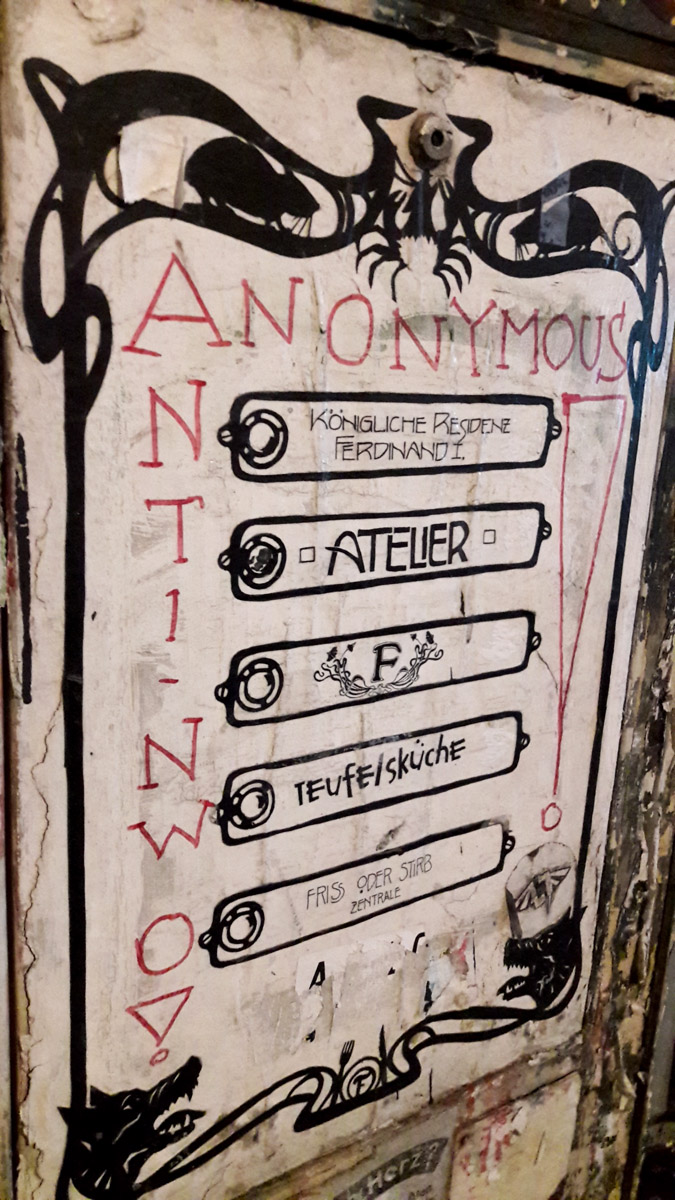 ANONYMOUS!
ANTI-NWO!
KÖNIGLICHE RESIDENZ
FERDINAND I.
ATELIER
F
TEUFELSKÜCHE
FRISS ODER STIRB
ZENTRALE
F
Herz?